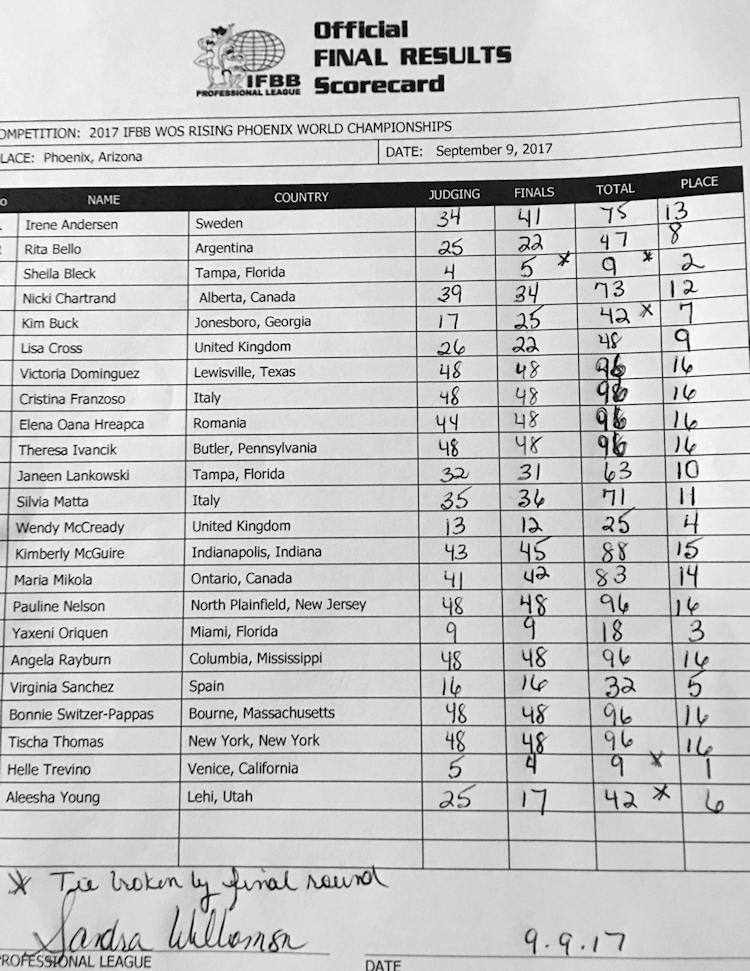 Official
FINAL RESULTS
Scorecard
IFBB
PROFESSIONAL LEAGUE
OMPETITION: 2017 IFBB WOS RISING PHOENIX WORLD CHAMPIONSHIPS
LACE: Phoenix, Arizona DATE: September 9, 2017
o NAME COUNTRY JUDGING FINALS TOTAL PLACE
Irene Andersen Sweden 34 41 75 13
Rita Bello Argentina 25 22 47 8
Sheila Bleck Tampa, Florida 4 5 * 9 * 2
Nicki Chartrand Alberta, Canada 39 34 73 12
Kim Buck Jonesboro, Georgia 17 25 42 * 7
Lisa Cross United Kingdom 26 22 48 9
Victoria Dominguez Lewisville, Texas 48 48 96 16
Cristina Franzoso Italy 48 48 96 16
Elena Oana Hreapca Romania 44 48 96 16
Theresa Ivancik Butler, Pennsylvania 48 48 96 16
Janeen Lankowski Tampa, Florida 32 31 63 10
Silvia Matta Italy 35 36 71 11
Wendy McCready United Kingdom 13 12 25 4
Kimberly McGuire Indianapolis, Indiana 43 45 88 15
Maria Mikola Ontario, Canada 41 42 83 14
Pauline Nelson North Plainfield, New Jersey 48 48 96 16
Yaxeni Oriquen Miami, Florida 9 9 18 3
Angela Rayburn Columbia, Mississippi 48 48 96 16
Virginia Sanchez Spain 16 16 32 5
Bonnie Switzer-Pappas Bourne, Massachusetts 48 48 96 16
Tischa Thomas New York, New York 48 48 96 16
Helle Trevino Venice, California 5 4 9 * 1
Aleesha Young Lehi, Utah 25 17 42 * 6
* Tie broken by final round
Sandra Williamson 9.9.17
PROFESSIONAL LEAGUE DATE